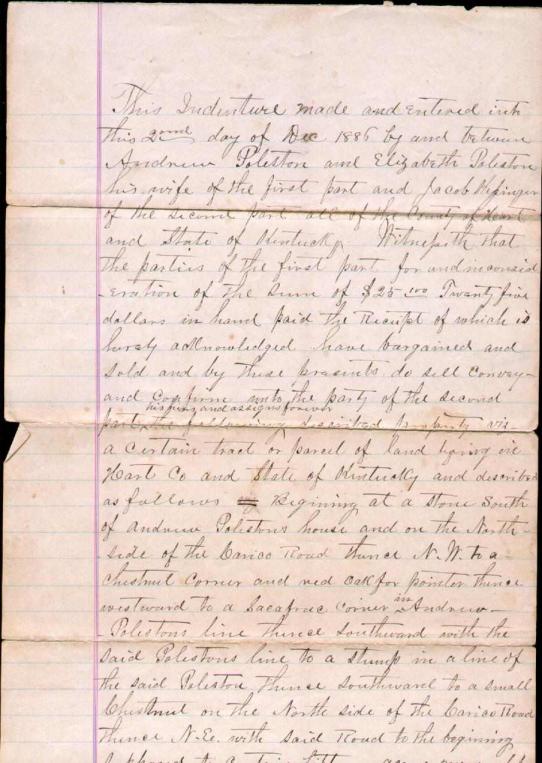 This Indenture made and entered into
this 2ond day of Dec 1886 by and between
Andrew Poleston and Elizabeth Poleston
his wife of the first part and Jacob
of the second part all of the County of Heart
and State of Kentucky. Witnesseth that
the parties of the first part for and inconsid
-eration of the sum of $25.00 Twenty five
dollars in hand paid the Receipt of which is
hereby acknowledged have bargained and
sold and by these presents do sell convey
and confirm unto the party of the second
his and assigns forever
part the following described property viz
a certain tract or parcel of land lying in
Hart Co and State of Kentucky and described
as follows Begining at a stone South
of Andrew Polestons house and on the North
side of the Carico Road thence N.W. to a
chestnut corner and red oak for pointer thence
westward to a Sacafrac corner in Andrew
Polestons line thence Southward with the
said Polestons line to a stump in a line of
the said Poleston thence southward to a small
Chestnut on the North side of the Carico Road
thence N.E. with said Road to the begining